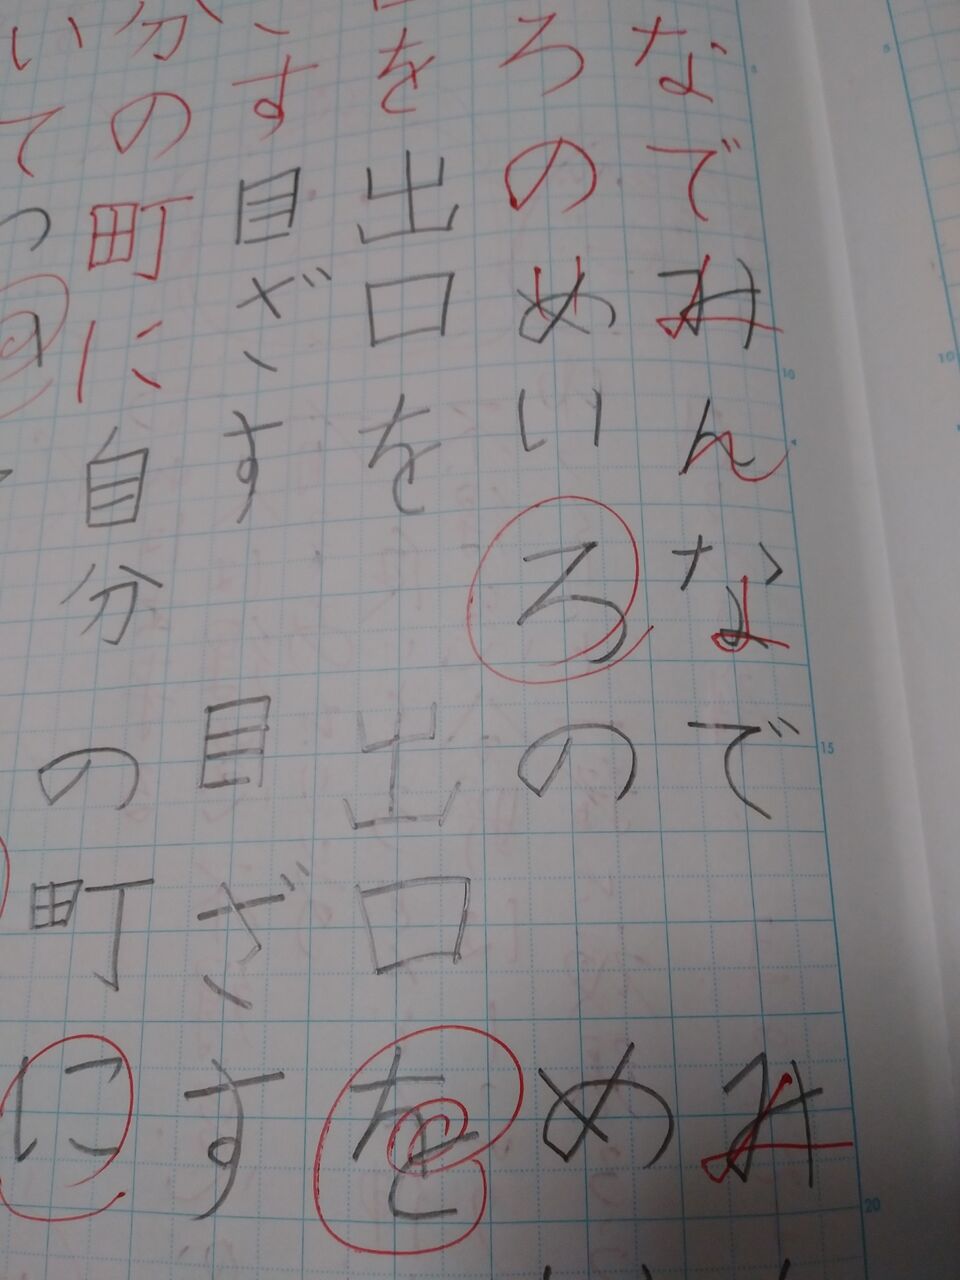 なでみんなでみ
ろのめいろのめ
を出口を出口を
す目ざす目ざす
分の町に自分の町に
いてつ